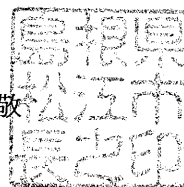 敬
島根県
松江市
長之印